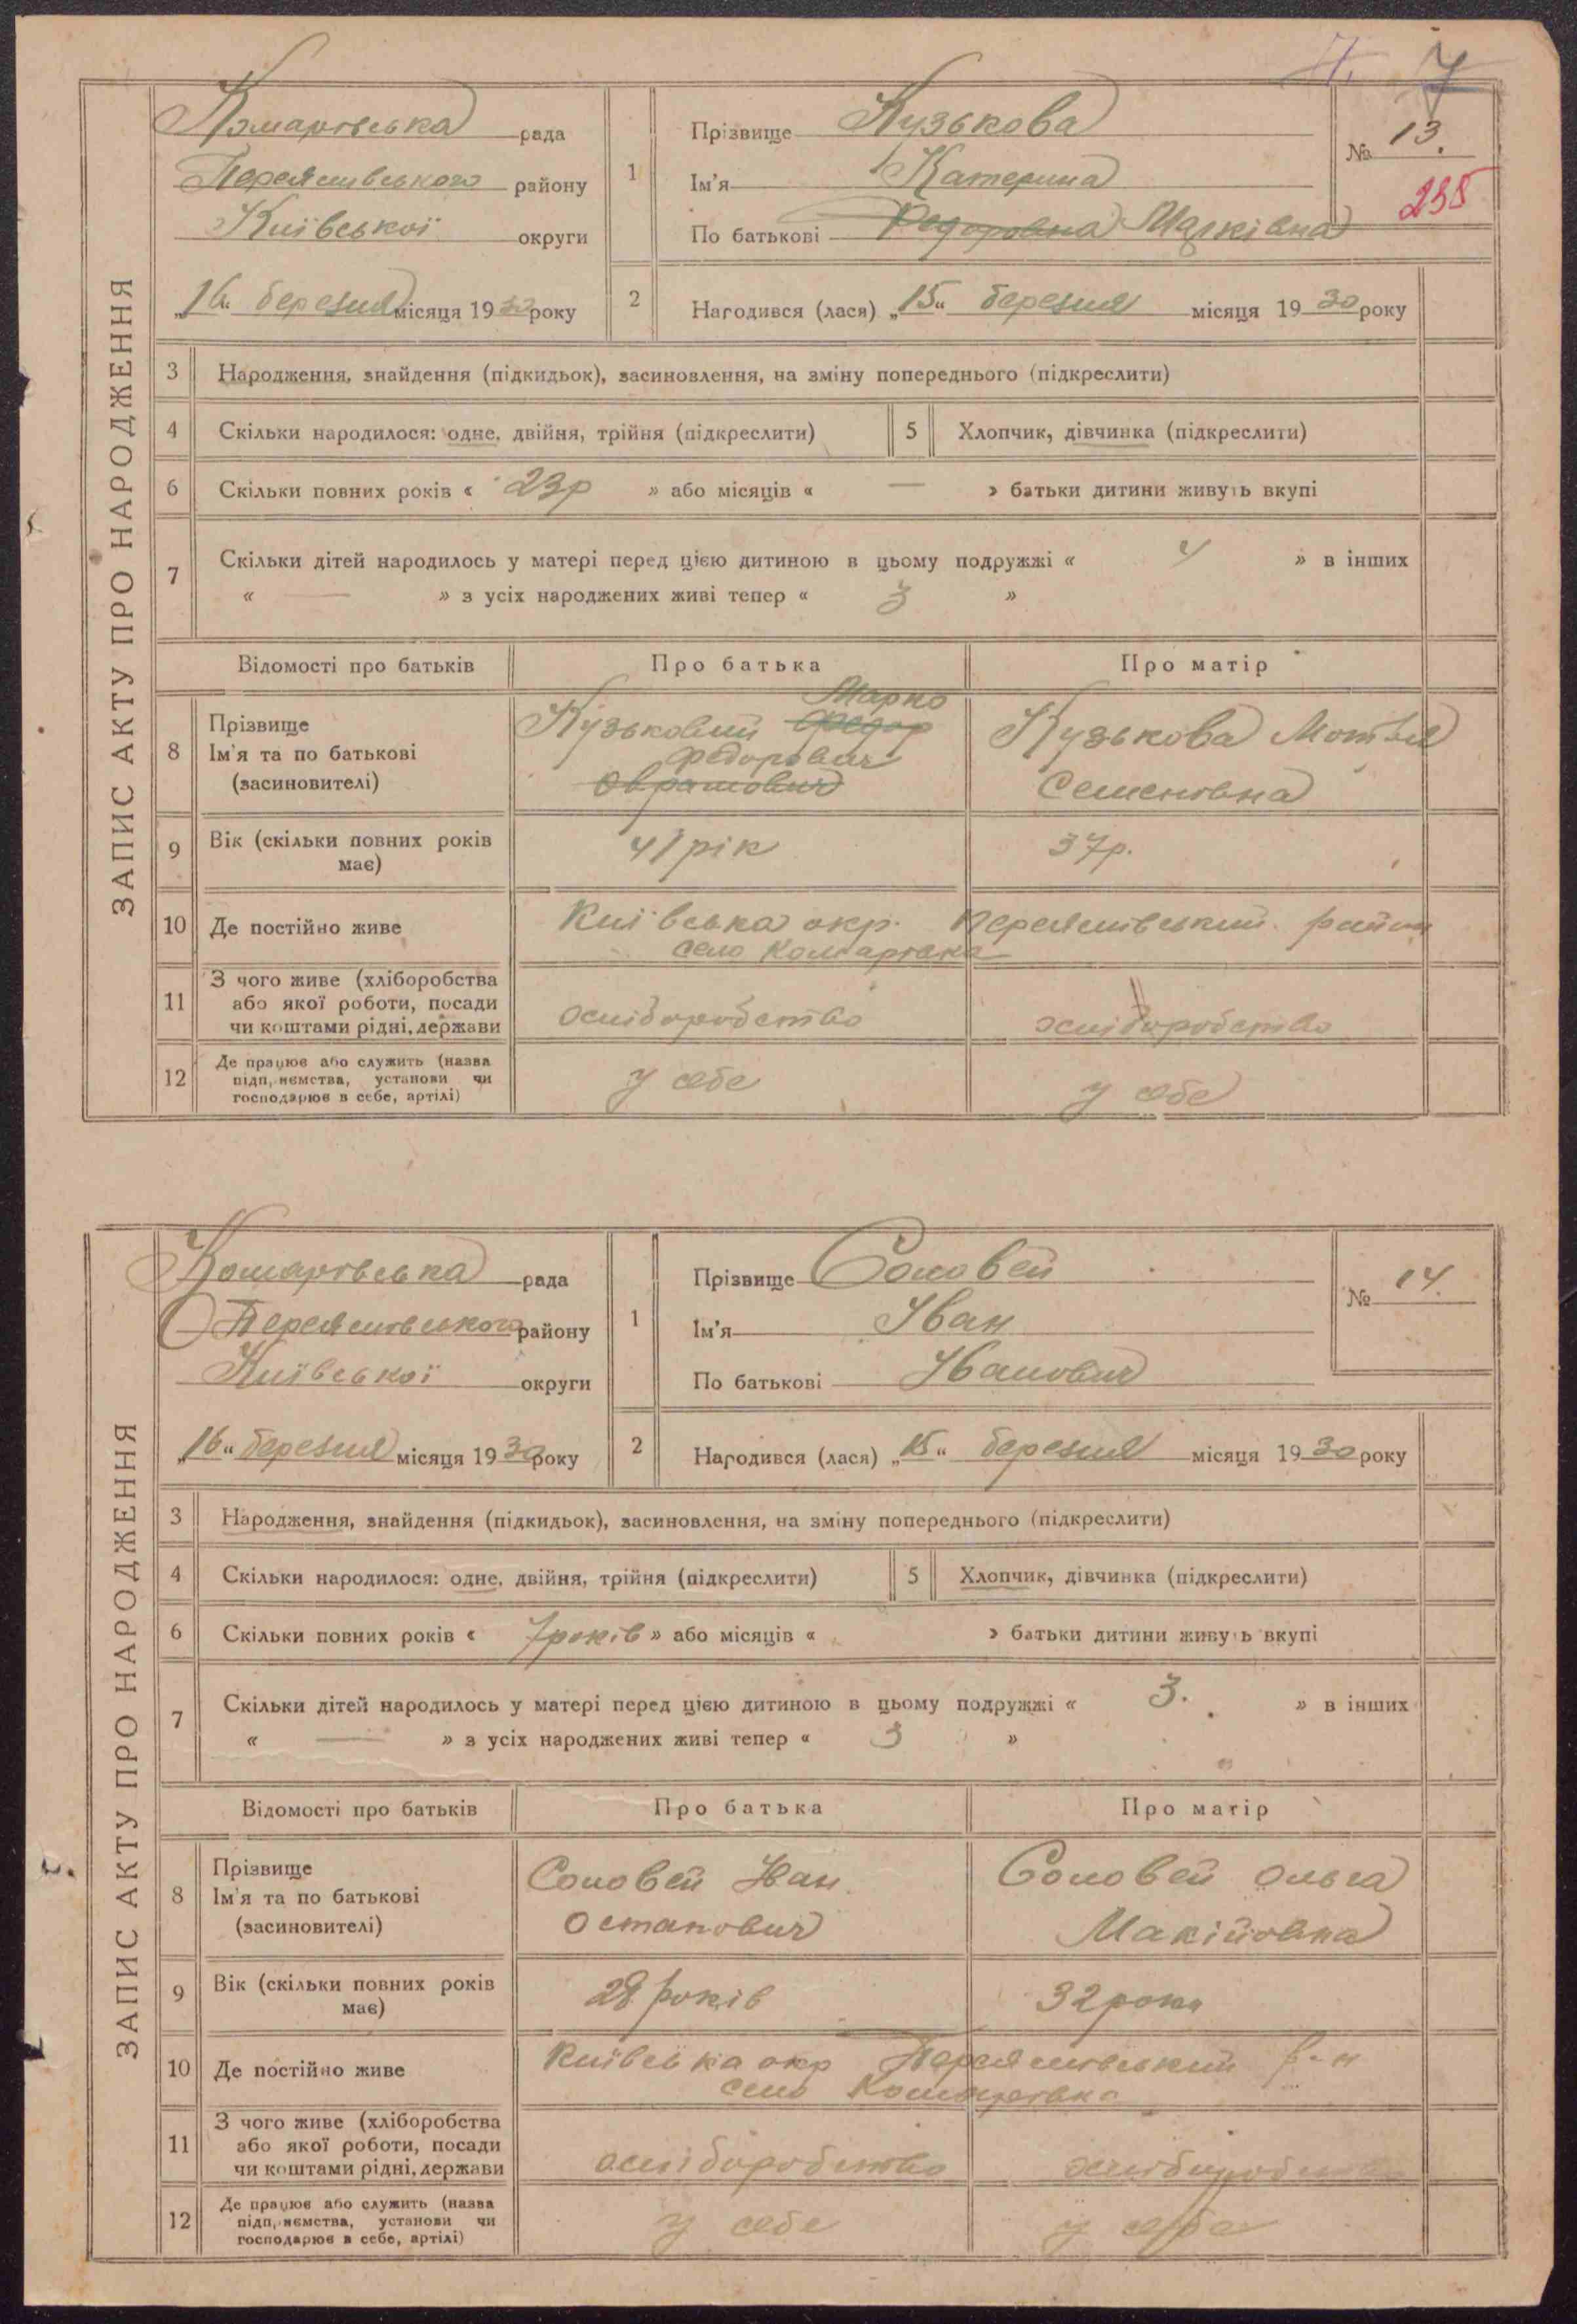 7
ЗАПИС АКТУ ПРО НАРОДЖЕННЯ
Комарівська рада
Переяславського району
Київської округи
„16“ березня місяця 1930 року
1
Прізвище Кузькова
Ім'я Катерина
По батькові Федоровна Марківна
№ 13.
235
2
Народився (лася) „15“ березня місяця 1930 року
3 Народження, знайдення (підкидьок), засиновлення, на зміну попереднього (підкреслити)
4 Скільки народилося: одне, двійня, трійня (підкреслити)
5 Хлопчик, дівчинка (підкреслити)
6 Скільки повних років « 23р » або місяців « — » батьки дитини живуть вкупі
7 Скільки дітей народилось у матері перед цією дитиною в цьому подружжі « 4 » в інших
« — » з усіх народжених живі тепер « 3 »
Відомості про батьків Про батька Про матір
8 Прізвище
Ім'я та по батькові
(засиновителі)
Кузьковий Федор Марко
Федорович
Кузькова Мотря
Семеновна
9 Вік (скільки повних років
має)
41 рік
37р.
10 Де постійно живе
Київська окр. Переяславський район
село Комарівка
11 З чого живе (хліборобства
або якої роботи, посади
чи коштами рідні, держави
хліборобство
хліборобство
12 Де працює або служить (назва
підприємства, установи чи
господарює в себе, артілі)
у себе
у себе
ЗАПИС АКТУ ПРО НАРОДЖЕННЯ
Комарівська рада
Переяславського району
Київської округи
„16“ березня місяця 1930 року
1
Прізвище Соловей
Ім'я Іван
По батькові Іванович
№ 14.
2
Народився (лася) „15“ березня місяця 1930 року
3 Народження, знайдення (підкидьок), засиновлення, на зміну попереднього (підкреслити)
4 Скільки народилося: одне, двійня, трійня (підкреслити)
5 Хлопчик, дівчинка (підкреслити)
6 Скільки повних років « 7 років » або місяців « » батьки дитини живуть вкупі
7 Скільки дітей народилось у матері перед цією дитиною в цьому подружжі « 3. » в інших
« — » з усіх народжених живі тепер « 3 »
Відомості про батьків Про батька Про матір
8 Прізвище
Ім'я та по батькові
(засиновителі)
Соловей Іван
Остапович
Соловей Ольга
Макійовна
9 Вік (скільки повних років
має)
28 років
32 роки
10 Де постійно живе
Київська окр Переяславський р-н
село Комарівка
11 З чого живе (хліборобства
або якої роботи, посади
чи коштами рідні, держави
хліборобство
хліборобство
12 Де працює або служить (назва
підприємства, установи чи
господарює в себе, артілі)
у себе
у себе